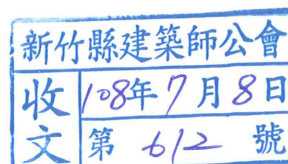 新竹縣建築師公會
收文
108年7月8日
第 612 號